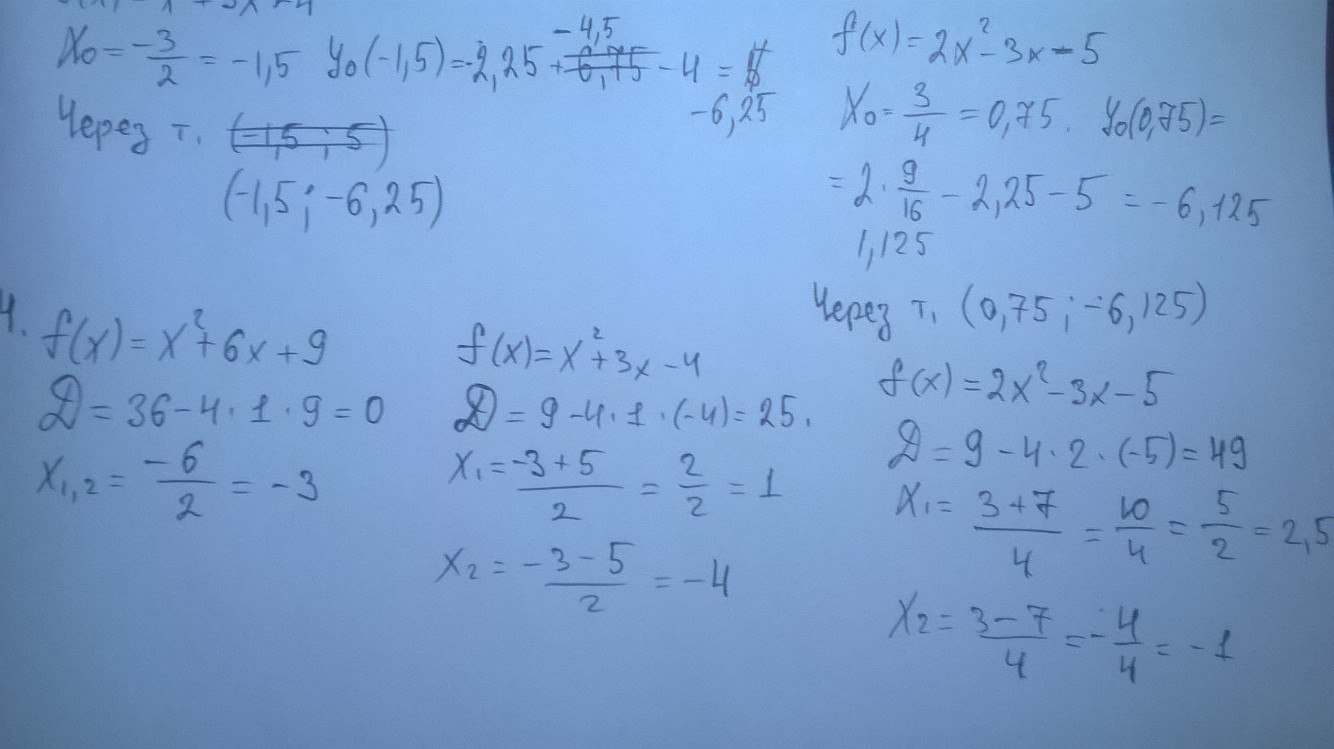 X₀ = -3/2 = -1,5 y₀(-1,5) = 2,25 + 6,75 - 4 =
-4,5
-6,25
Через т. (-1,5 ; 5)
(-1,5 ; -6,25)
f(x) = 2x² - 3x - 5
X₀ = 3/4 = 0,75. y₀(0,75) =
= 2 · 9/16 - 2,25 - 5 = -6,125
1,125
Через т. (0,75 ; -6,125)
4.
f(x) = x² + 6x + 9
D = 36 - 4 · 1 · 9 = 0
X₁,₂ = -6/2 = -3
f(x) = x² + 3x - 4
D = 9 - 4 · 1 · (-4) = 25.
X₁ = -3+5/2 = 2/2 = 1
X₂ = -3-5/2 = -4
f(x) = 2x² - 3x - 5
D = 9 - 4 · 2 · (-5) = 49
X₁ = 3+7/4 = 10/4 = 5/2 = 2,5
X₂ = 3-7/4 = -4/4 = -1